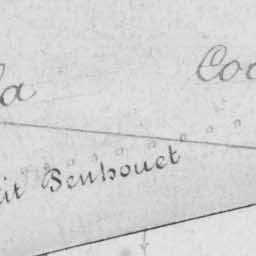 la
Coo
it Benhouet